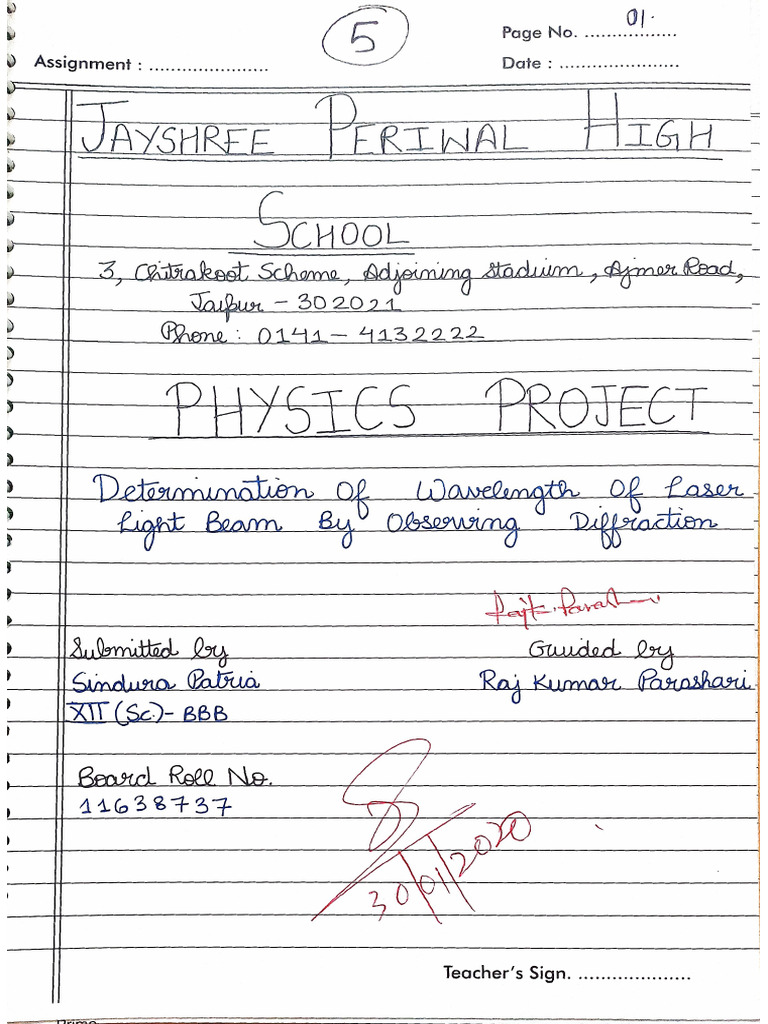 5
Page No. .................. 01.
Assignment : ......................
Date : ......................
JAYSHREE PERIWAL HIGH
SCHOOL
3, Chitrakoot Scheme, Adjoining Stadium, Ajmer Road,
Jaipur - 302021
Phone : 0141 - 4132222
PHYSICS PROJECT
Determination Of Wavelength Of Laser
Light Beam By Observing Diffraction
Submitted by
Guided by
Sindura Patria
Raj Kumar Parashari
XII (Sc.) - BBB
Board Roll No.
11638737
30/01/2020
Teacher's Sign. .....................